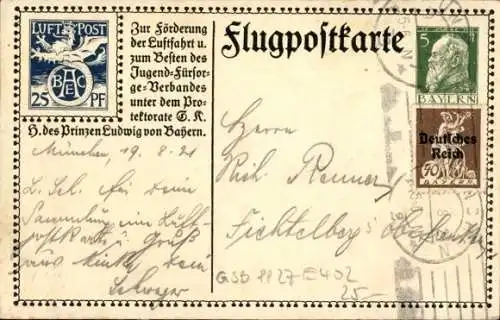 LUFT POST
BAEC
25 PF
Zur Förderung
der Luftfahrt u.
zum Besten des
Jugend-Fürsor-
ge-Verbandes
unter dem Pro-
tektorate S. K.
H. des Prinzen Ludwig von Bayern.
Flugpostkarte
5
BAYERN
Deutsches
Reich
40
BAYERN
München 19.8.21
L. Sel. bei dein
Sammlung ein Luft
postkarte u. Gruß
dein
Schwager
Herrn
Rich. Renner
Fichtelberg
GSD 8827 E402
25.-